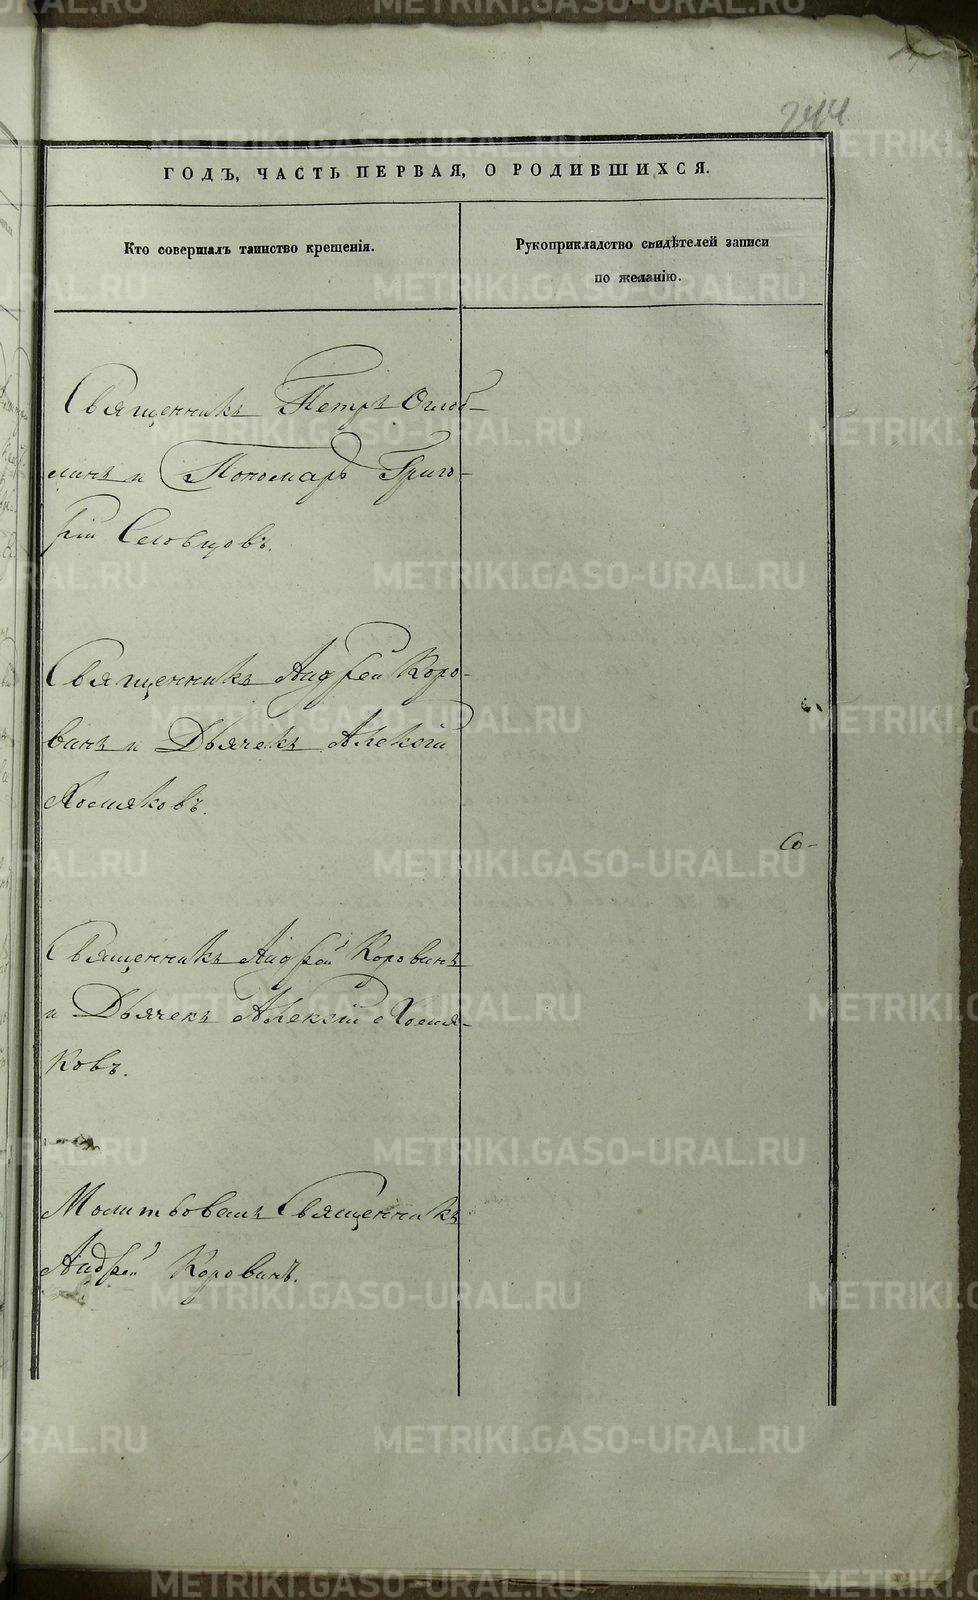 244
ГОДЪ, ЧАСТЬ ПЕРВАЯ, О РОДИВШИХСЯ.
Кто совершалъ таинство крещенія.
Рукоприкладство свидѣтелей записи
по желанію.
Священникъ Петръ Оглоб-
линъ и Пономарь Григо-
рій Словцовъ.
Священникъ Андрей Коро-
винъ и Дьячекъ Алексій
Хомяковъ.
Со-
Священникъ Андрей Коровинъ
и Дьячекъ Алексій Хомя-
ковъ.
Молитвовалъ Священникъ
Андрей Коровинъ.
METRIKI.GASO-URAL.RU